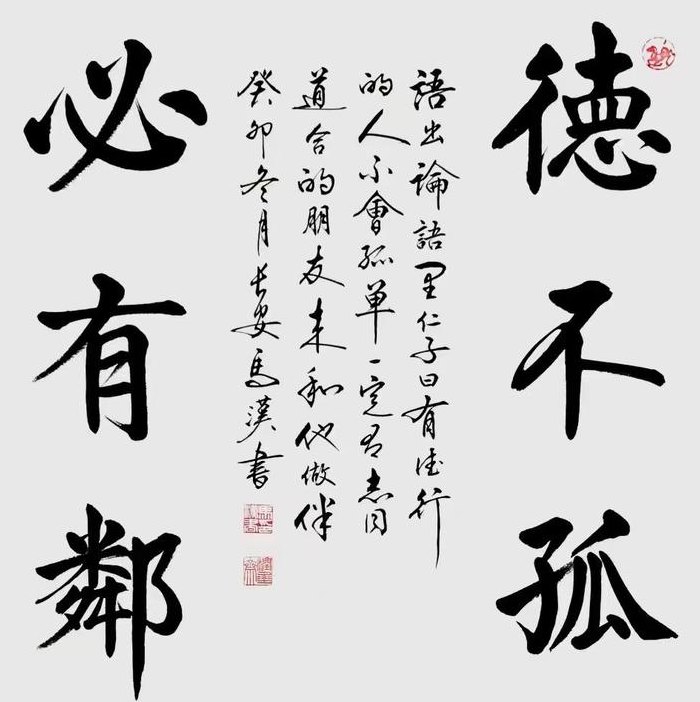 德不孤
語出論語里仁子曰有德行
的人不會孤单一定有志同
道合的朋友来和他做伴
癸卯冬月長安馬漢書
必有鄰